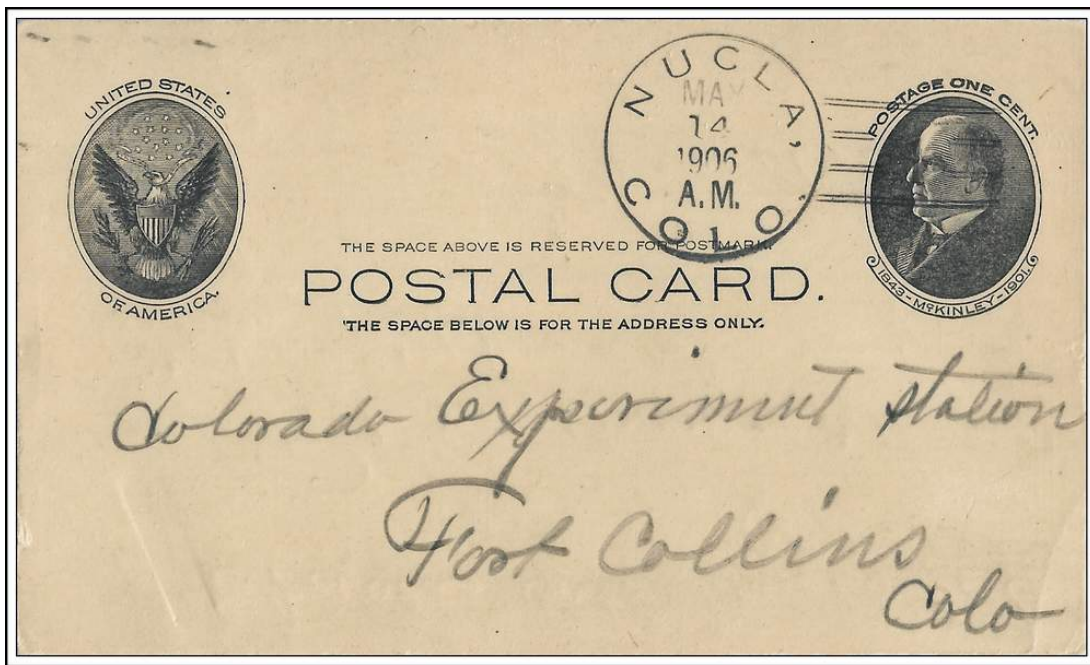 UNITED STATES
OF AMERICA.
NUCLA, COLO.
MAY
14
1906
A.M.
POSTAGE ONE CENT.
1843-McKINLEY-1901.
THE SPACE ABOVE IS RESERVED FOR POSTMARK.
POSTAL CARD.
THE SPACE BELOW IS FOR THE ADDRESS ONLY.
Colorado Experiment Station
Fort Collins
Colo